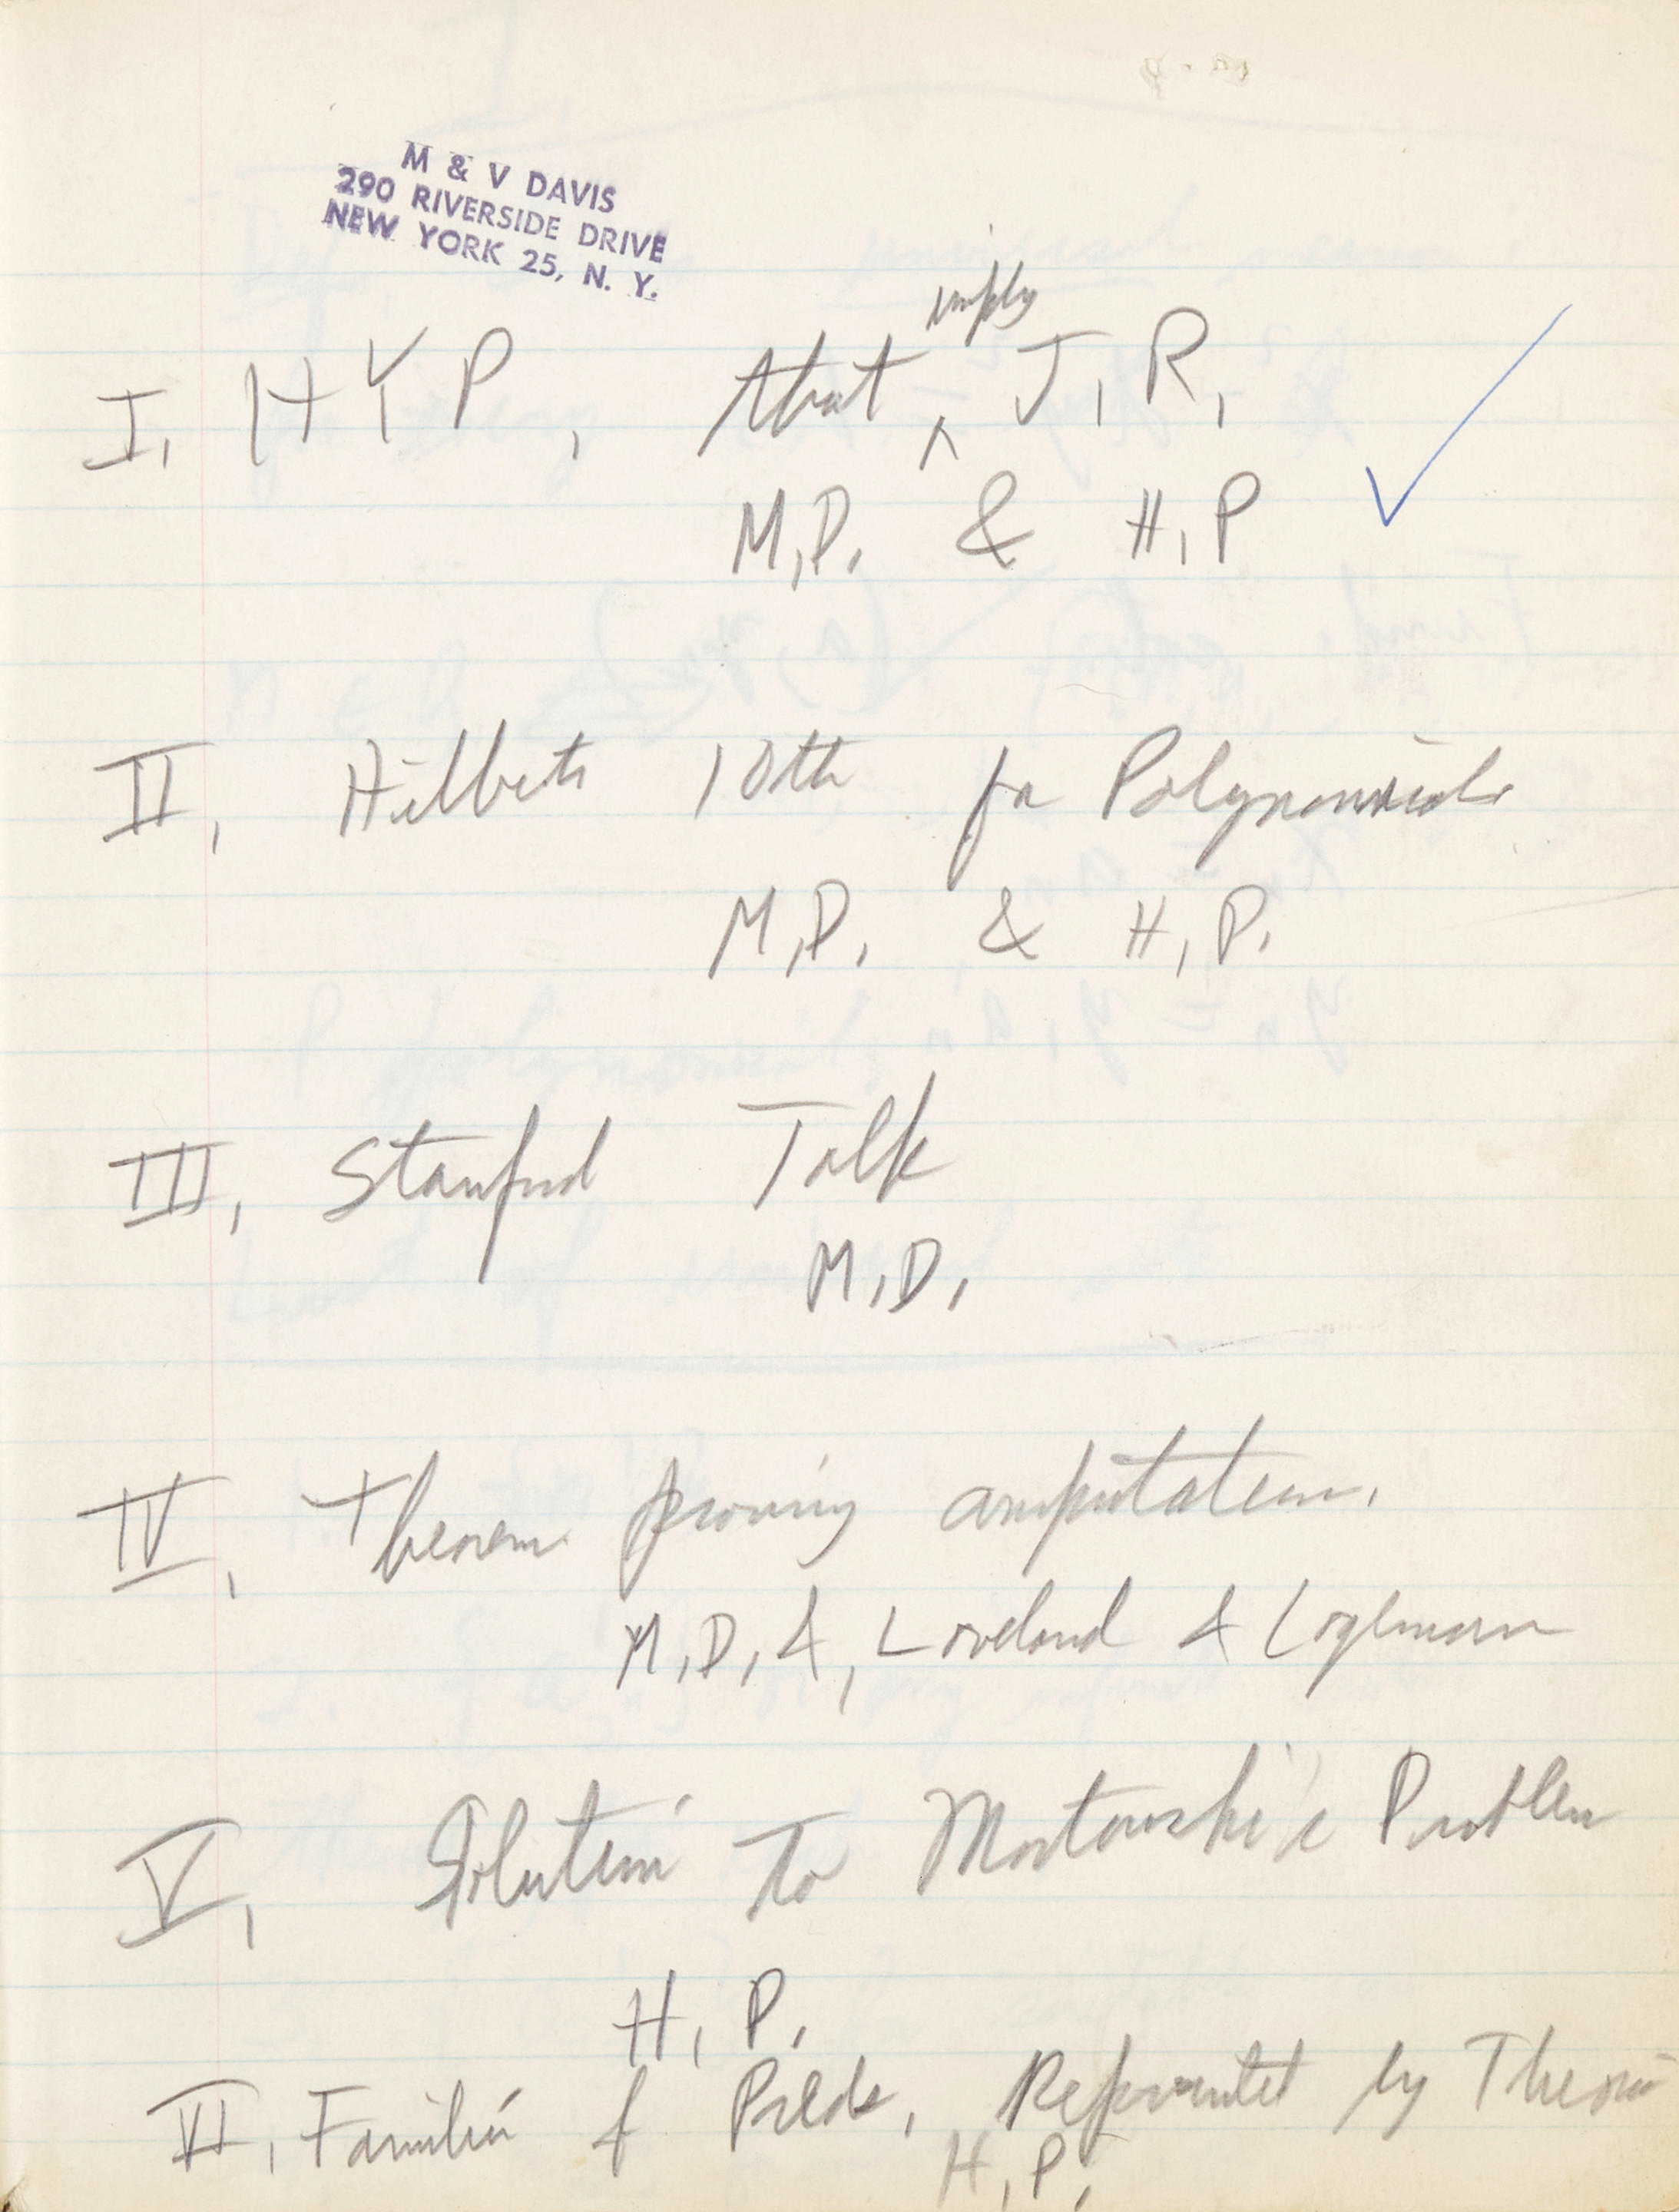 M & V DAVIS
290 RIVERSIDE DRIVE
NEW YORK 25, N. Y.
imply
I. HYP, that ^ J.R.
M.D. & H.P
II. Hilberts 10th for Polynomials
M.D. & H.P.
III. Stanford Talk
M.D.
IV. Theorem proving computation.
M.D. &, Loveland & Logemann
V. Solution to Mostowski's Problem
H.P.
VI. Families of Preds. Represented by Theories
H.P.